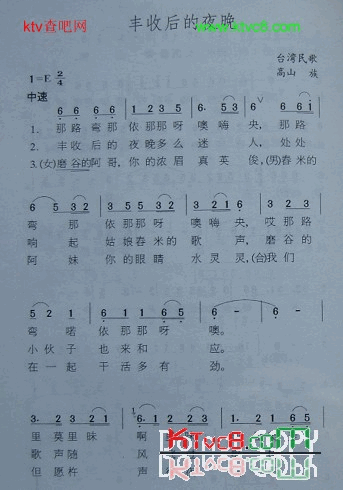 ktv查吧网
www.ktvc8.com
丰收后的夜晚
1=E 2/4
台湾民歌
高山 族
中速
6 6 6 6 1 2 3 5 6· 5 3 6 6 6 1
1. 那路弯那 依那那呀 噢嗨 央, 那路
2. 丰收后的 夜晚多么 迷 人, 处处
3. (女)磨谷的阿哥, 你的浓眉 真英 俊, (男)舂米的
6 5 3 2
弯 那 依那那呀 噢嗨 央, 哎那路
响 起 姑娘舂米的 歌 声, 磨谷的
阿 妹 你的眼睛 水灵 灵, (合)我们
5 2 1 6 6
弯 喏 依那那呀 噢。
小伙子 也来和 应。
在一起 干活多有 劲。
3· 2 3 2 1
里莫里昧 啊
歌声随 风
但愿杵 声
KTvc8.com
DO NOT COPY